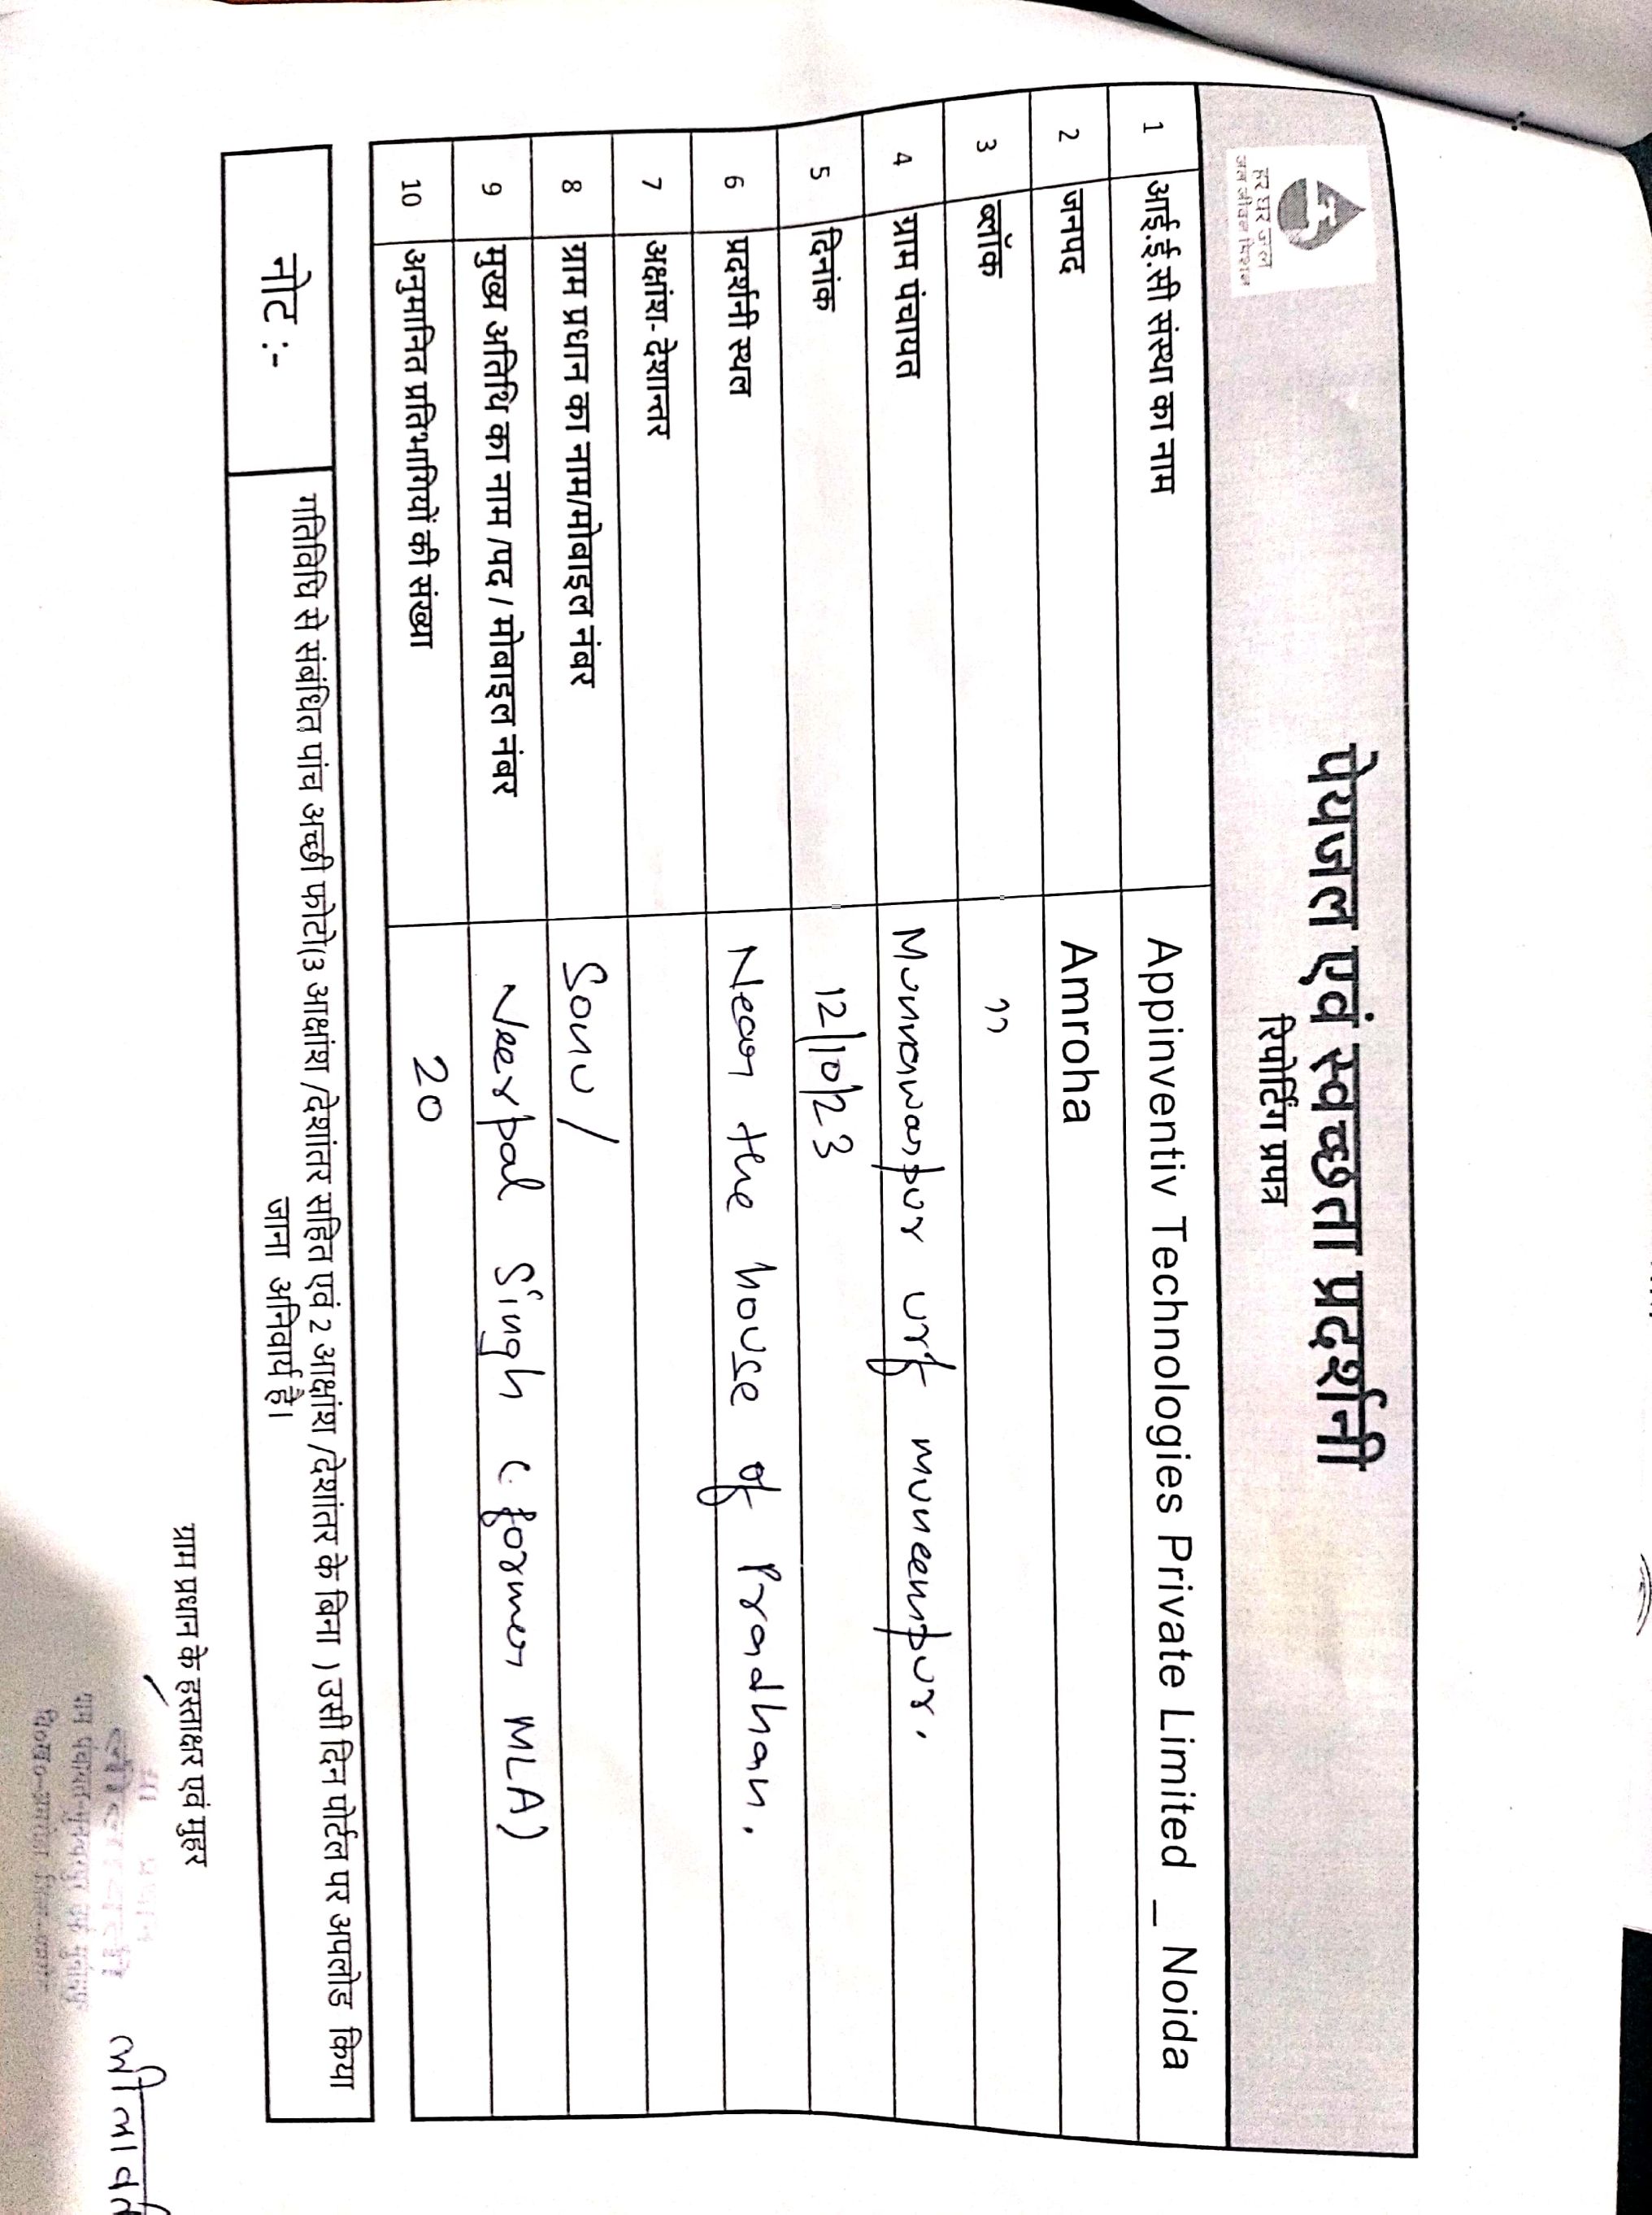 हर घर जल
जल जीवन मिशन
पेयजल एवं स्वच्छता प्रदर्शनी
रिपोर्टिंग प्रपत्र
1 आई.ई.सी संस्था का नाम Appinventiv Technologies Private Limited _ Noida
2 जनपद Amroha
3 ब्लॉक ''
4 ग्राम पंचायत Munnawarpur urf muneempur.
5 दिनांक 12/10/23
6 प्रदर्शनी स्थल Near the house of Pradhan.
7 अक्षांश- देशान्तर
8 ग्राम प्रधान का नाम/मोबाइल नंबर Sonu /
9 मुख्य अतिथि का नाम /पद / मोबाइल नंबर Veerpal Singh (former MLA)
10 अनुमानित प्रतिभागियों की संख्या 20
नोट :- गतिविधि से संबंधित पांच अच्छी फोटो(3 आक्षांश /देशांतर सहित एवं 2 आक्षांश /देशांतर के बिना ) उसी दिन पोर्टल पर अपलोड किया
जाना अनिवार्य है।
ग्राम प्रधान के हस्ताक्षर एवं मुहर